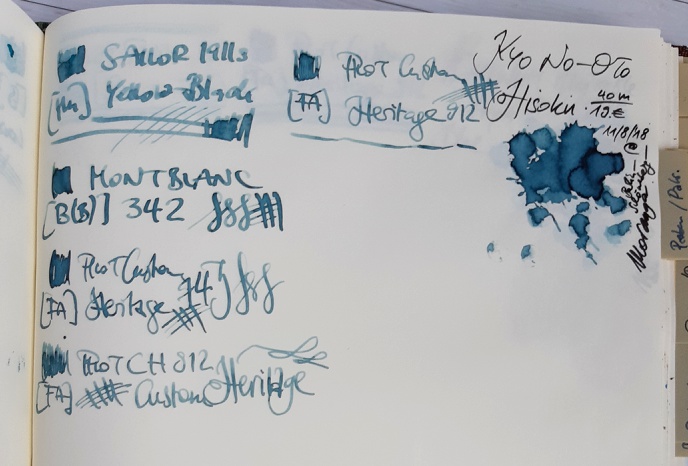 SAILOR 1911s
[HM] Yellow-Black
MONTBLANC
[B(B)] 342
Pilot Custom
[FA] Heritage 74
PILOT CH 912
[FA] Custom Heritage
Pilot Custom
[FA] Heritage 912
Kyo No-Oto
Hisoku
40 ml
12 €
11/8/18
@